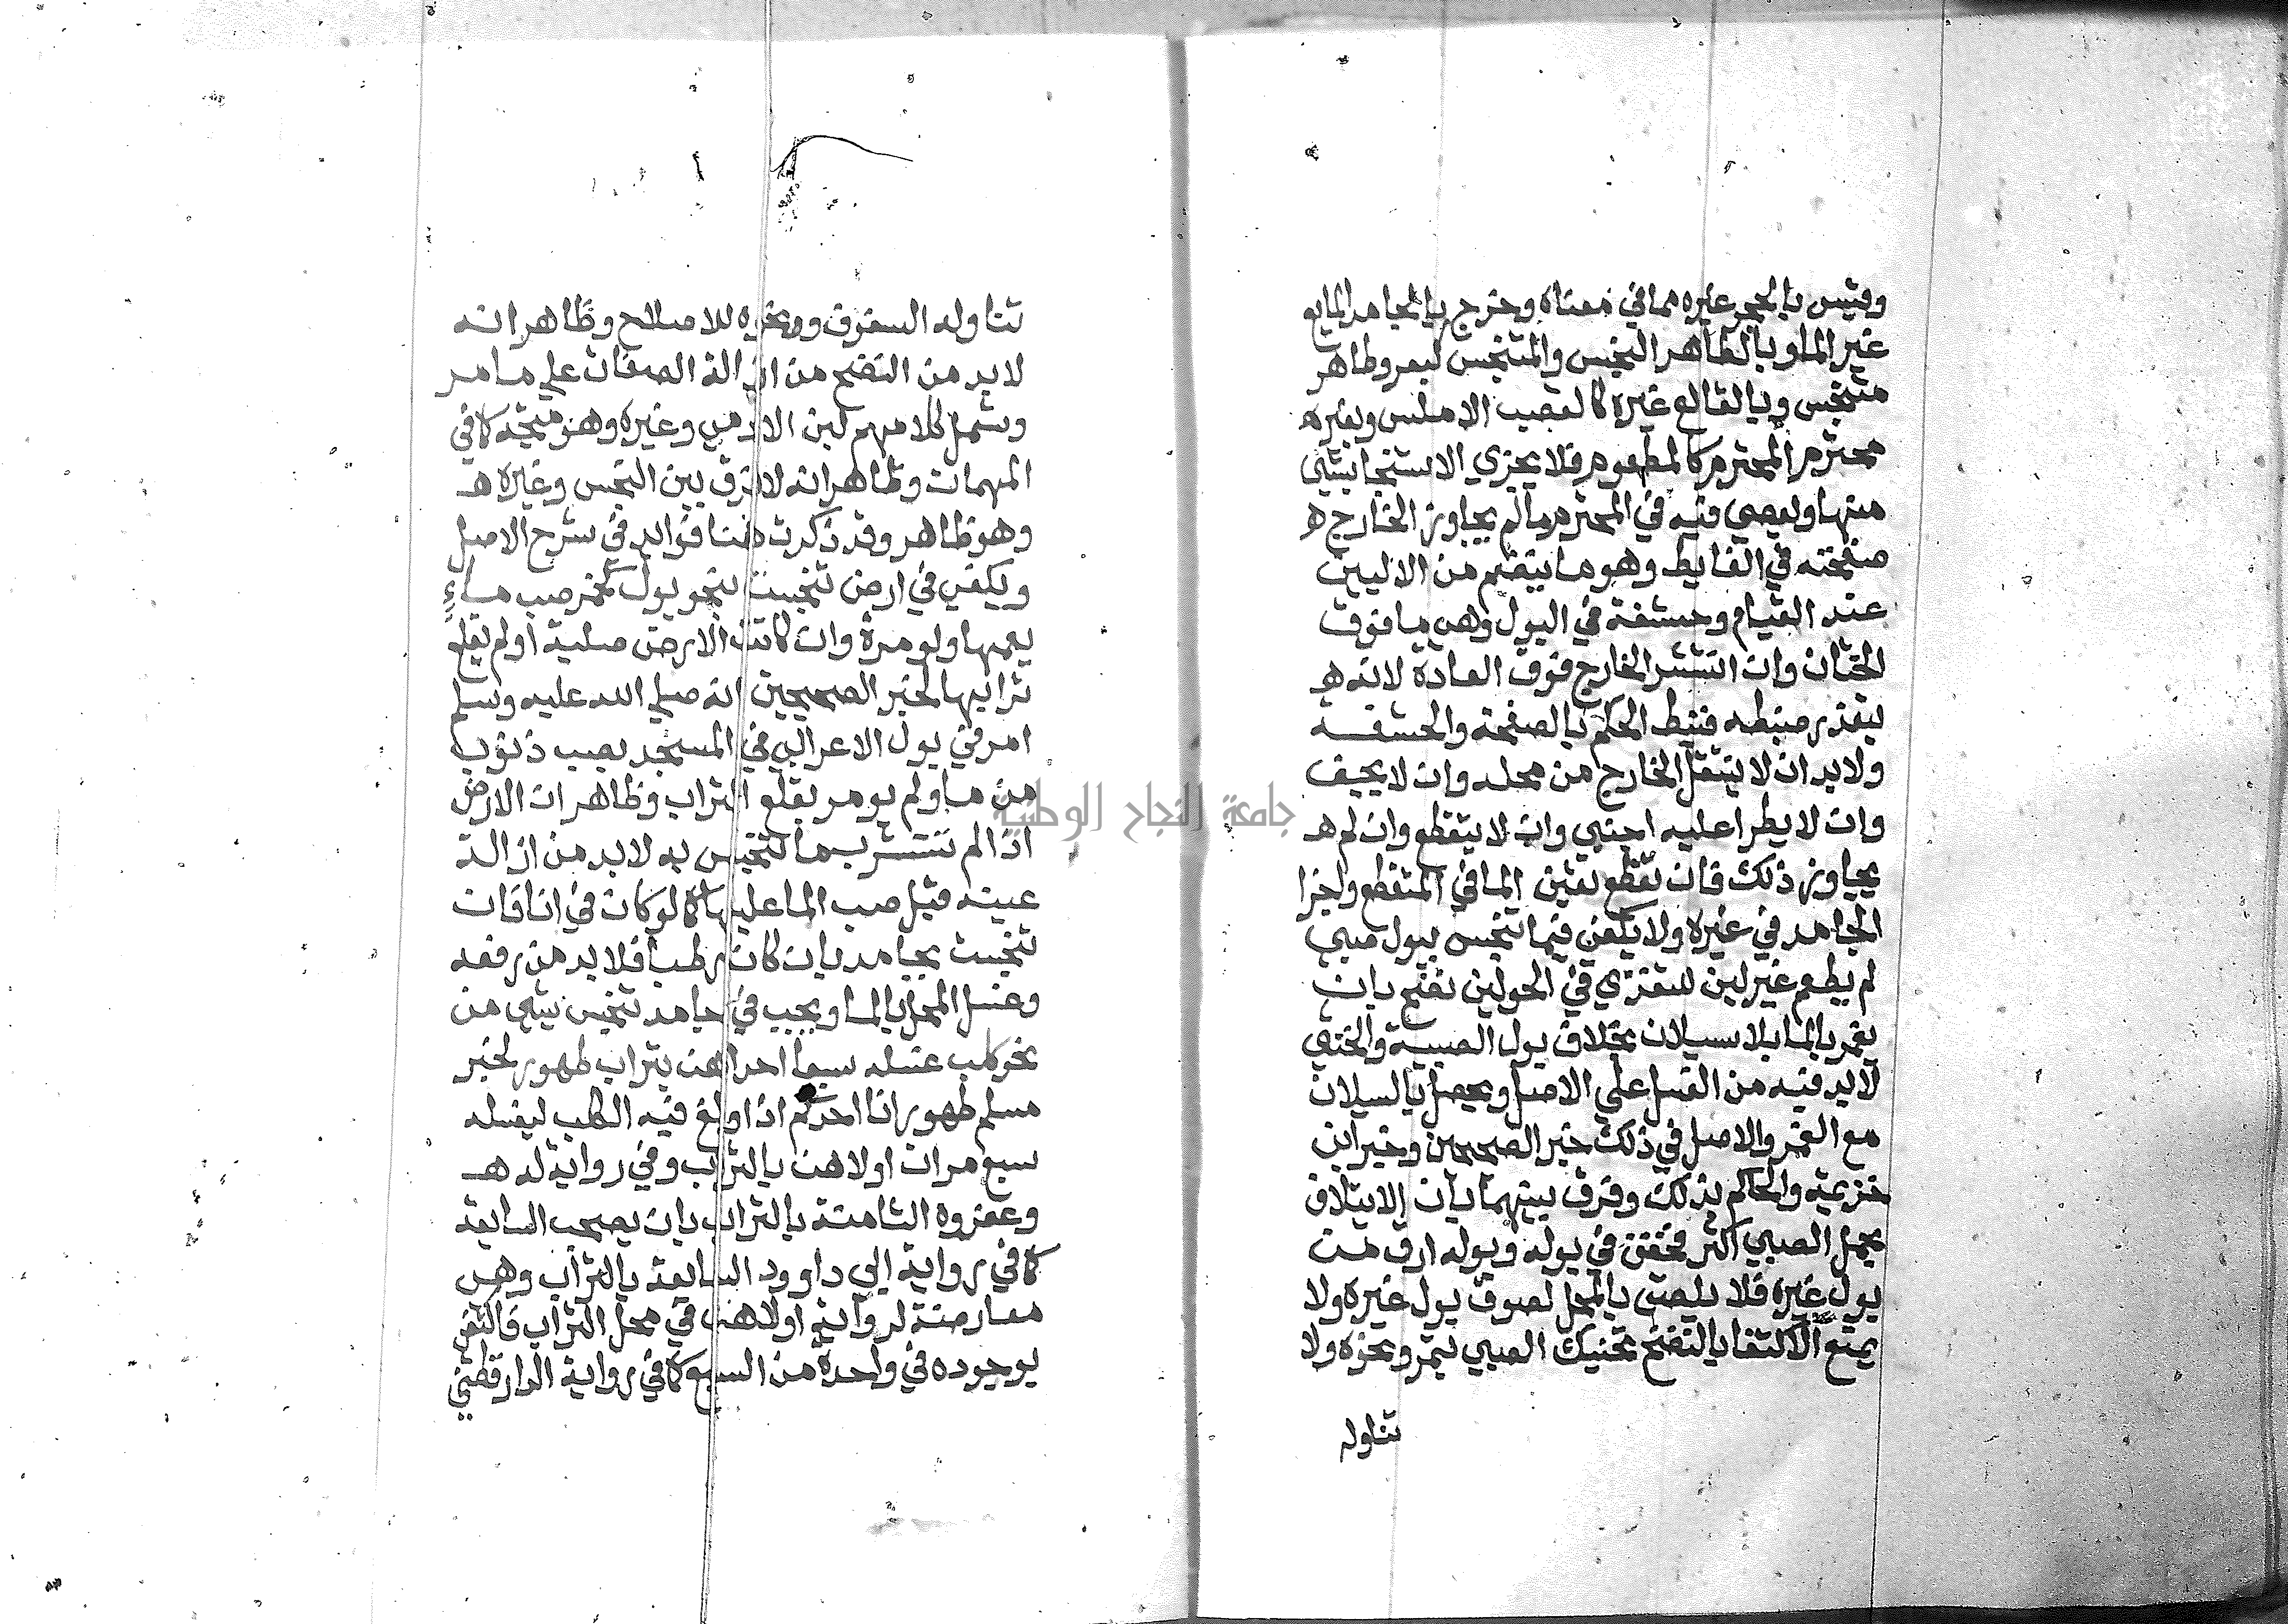 وقيس بالحجر غيره مما في معناه وخرج بالجامد المايع
غير الماو بالطاهر النجس والمتنجس كبعر وطاهر
متنجس وبالقالع غيره كالقصب الاملس وبغيره
محترم المحترم كالمطعوم فلا يجزي الاستنجا بشي
منها ويعصي فيه في المحترم مالم يجاوز الخارج ه
صفحته في الغايط وهو ما ينضم من الاليين
عند القيام وحشفة في البول وهي ما فوق
الختان وان انتشر الخارج فوق العادة لانه ه
يتعذر ضبطه فنيط الحكم بالصفحة والحشفة
ولابد ان لا ينتقل الخارج من محله وان لا يجف
وان لا يطرا عليه اجنبي وان لا يتقطع وان لم ه
يجاوز ذلك فان تقطع تعين الما في المتقطع واجزا
الجامد في غيره ولا يكفي فيما تنجس ببول صبي
لم يطعم غير لبن للتغذي في الحولين نضح بان
يغمر بالما بلا سيلان بخلاف بول الصبية والخنثي
لابد فيه من الغسل علي الاصل ويحصل بالسيلان
مع الغمر والاصل في ذلك خبر الصحيحين وخبر ابن
خزيمة والحاكم بذلك وفرق بينهما بان الايتلاف
بحمل الصبي اكثر فخفف في بوله وبوله ارق من
بول غيره فلا يلصق بالمحل لصوق بول غيره ولا
يمنع الاكتفا بالنضح تحنيك الصبي بتمر ونحوه ولا
تناوله
تناوله السفوف ونحوه للاصلاح وظاهر انه
لابد من النضح من ازالة الصفات علي ما مر
وشمل كلامهم لبن الادمي وغيره وهو متجه كما في
المهمات وظاهر انه لا فرق بين النجس وغيره ه
وهو ظاهر وقد ذكرت هنا فوايد في شرح الاصل
ويكفي في ارض تنجست بنحو بول كخمر صب ماء
يعمها ولو مرة وان كانت الارض صلبة او لم يقلع
ترابها لخبر الصحيحين انه صلي الله عليه وسلم
امر في بول الاعرابي في المسجد بصب ذنوب
من ما ولم يومر بقلع التراب وظاهر ان الارض
اذا لم تتشرب ما تنجس به لابد من ازالة
عينه قبل صب الما عليها كما لو كان في انا فان
تنجست بجامد بان كان رطبا فلابد من رفعه
وغسل المحل بالما ويجب في جامد تنجس بشي من
نحو كلب غسله سبعا احداهن بتراب طهور لخبر
مسلم طهور انا احدكم اذا ولغ فيه الكلب ليغسله
سبع مرات اولاهن بالتراب وفي رواية له ه
وعفروه الثامنة بالتراب بان يصحب السابعة
كما في رواية ابي داوود السابعة بالتراب وهي
معارضة لرواية اولاهن في محل التراب فاكتفي
بوجوده في واحدة من السبع كما في رواية الدارقطني
جامعة النجاح الوطنية